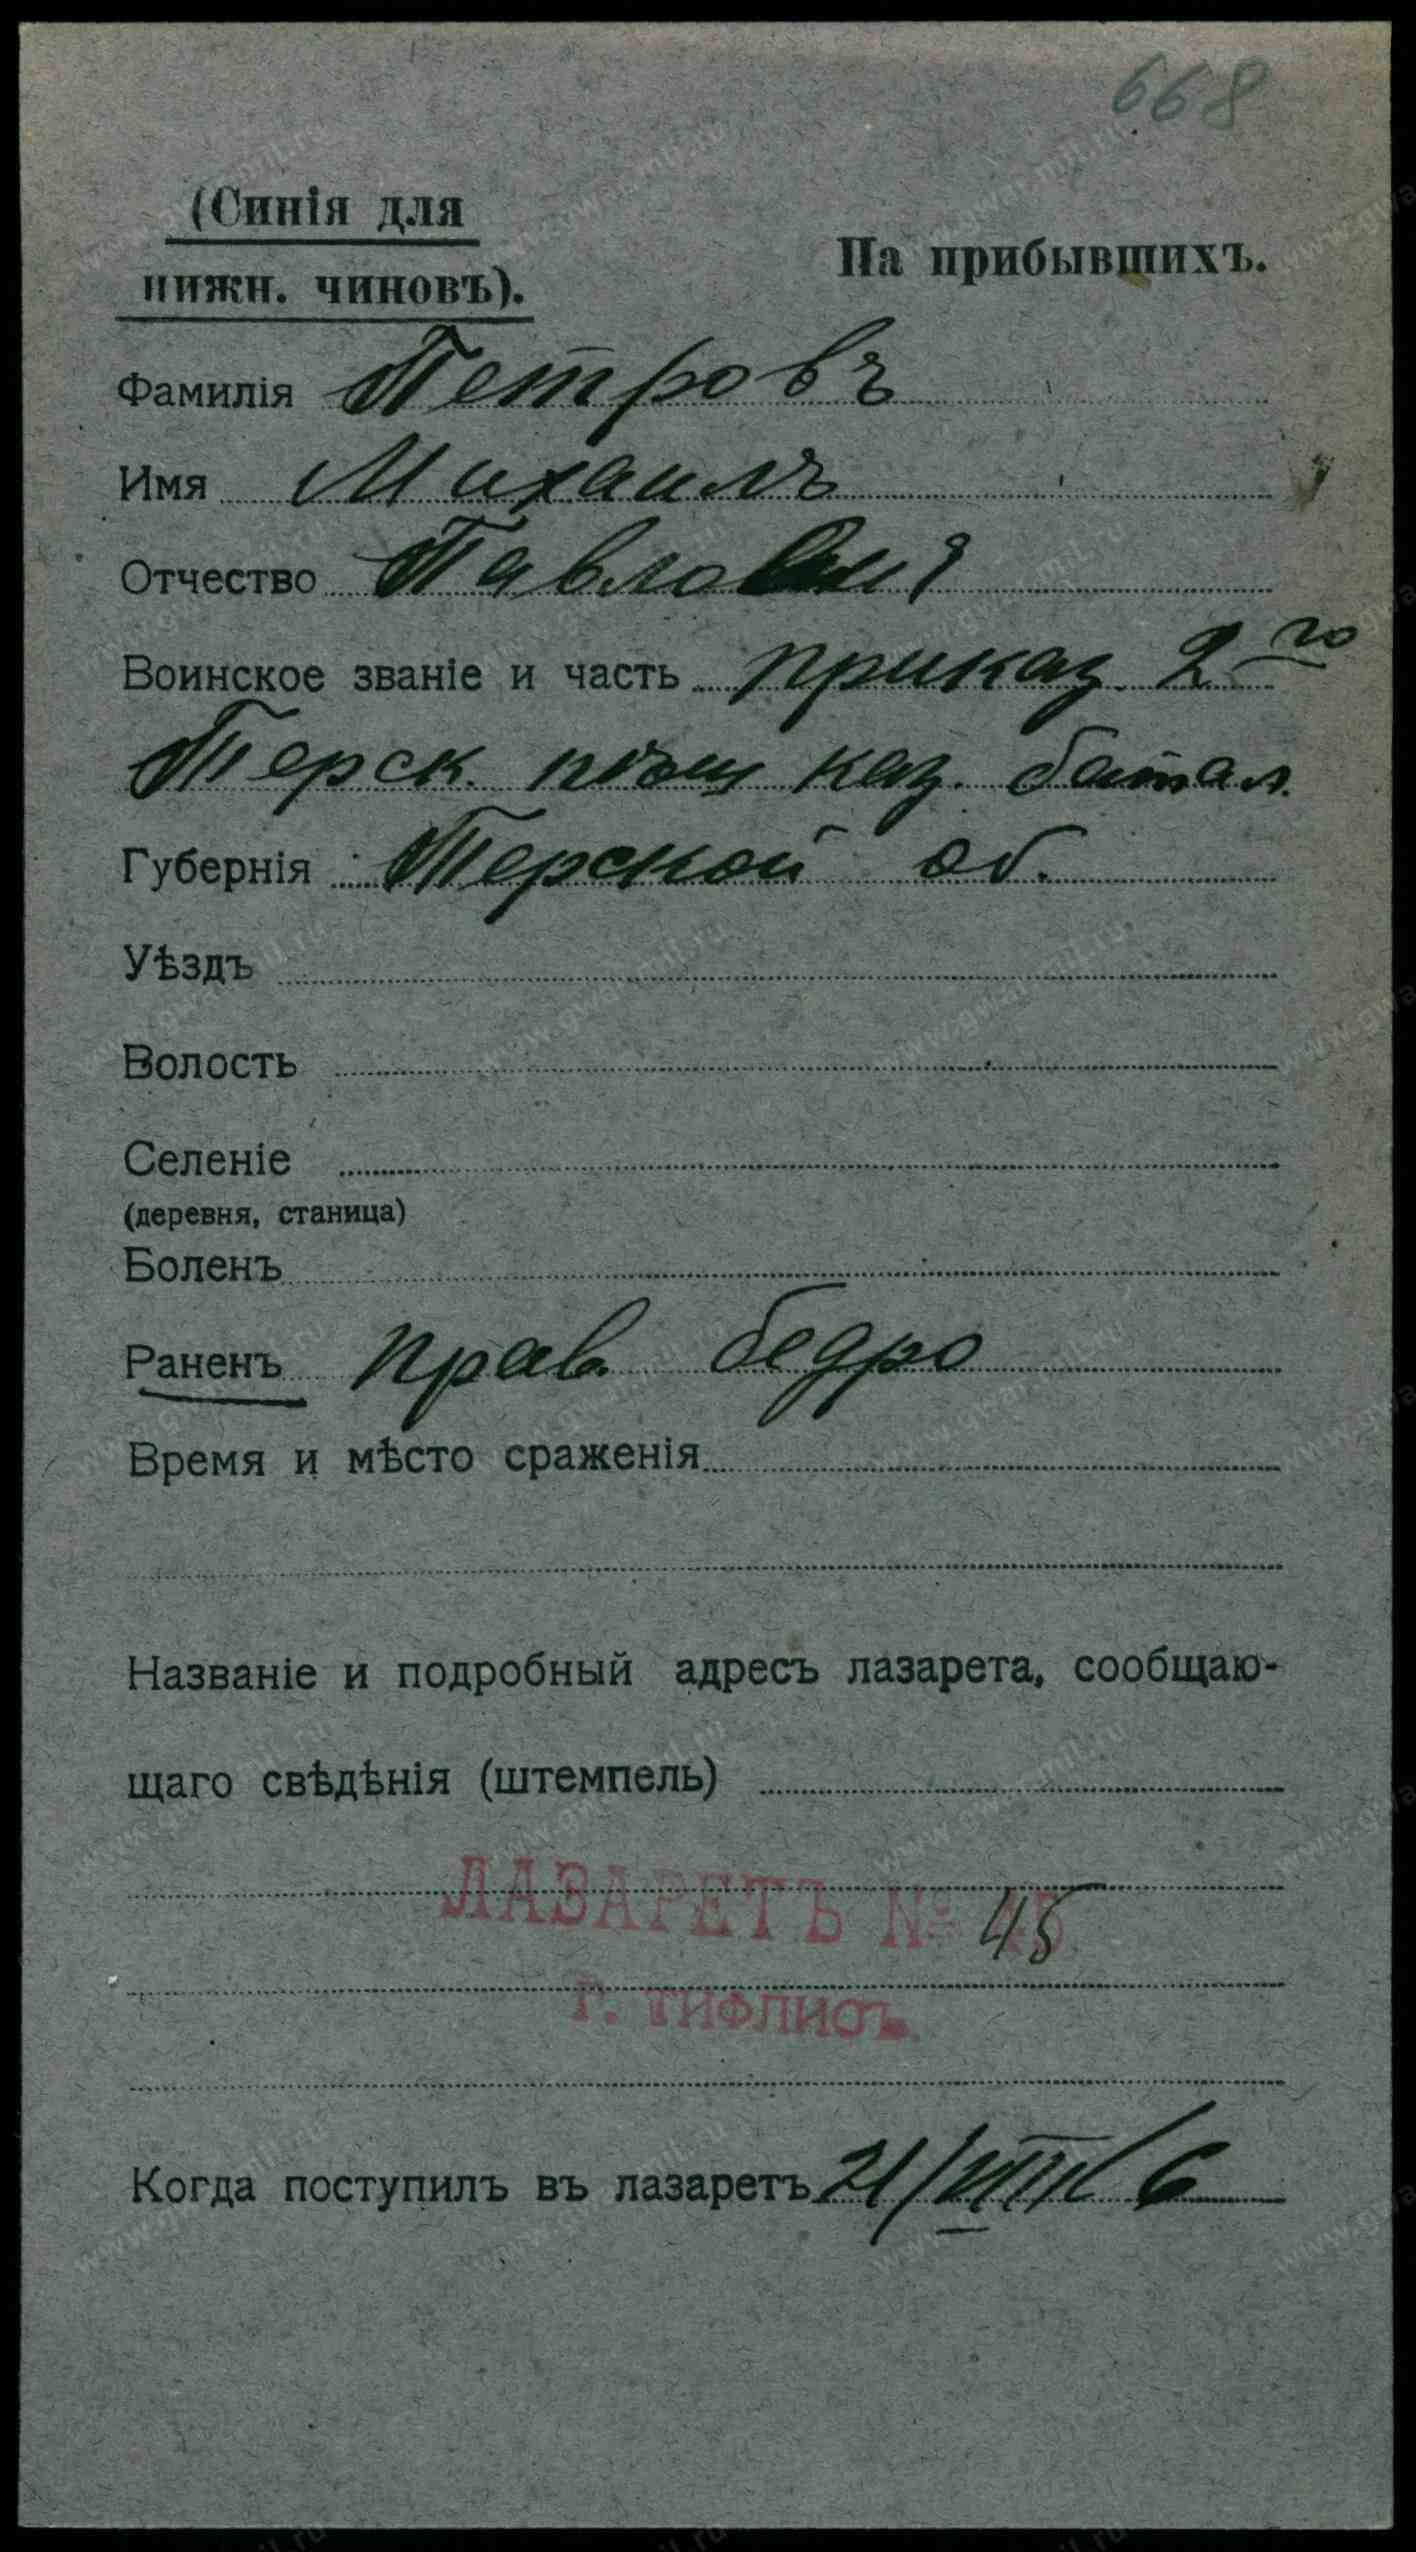 668
(Синія для
нижн. чиновъ).
На прибывшихъ.
Фамилія Петровъ
Имя Михаилъ
Отчество
Воинское званіе и часть приказ. 2го
Терск. каз. батал.
Губернія Терской об.
Уѣздъ
Волость
Селеніе
(деревня, станица)
Боленъ
Раненъ прав. бедро
Время и мѣсто сраженія
Названіе и подробный адресъ лазарета, сообщаю-
щаго свѣдѣнія (штемпель)
ЛАЗАРЕТЪ № 45
Г. ТИФЛИСЪ.
Когда поступилъ въ лазаретъ 21/VIII 6